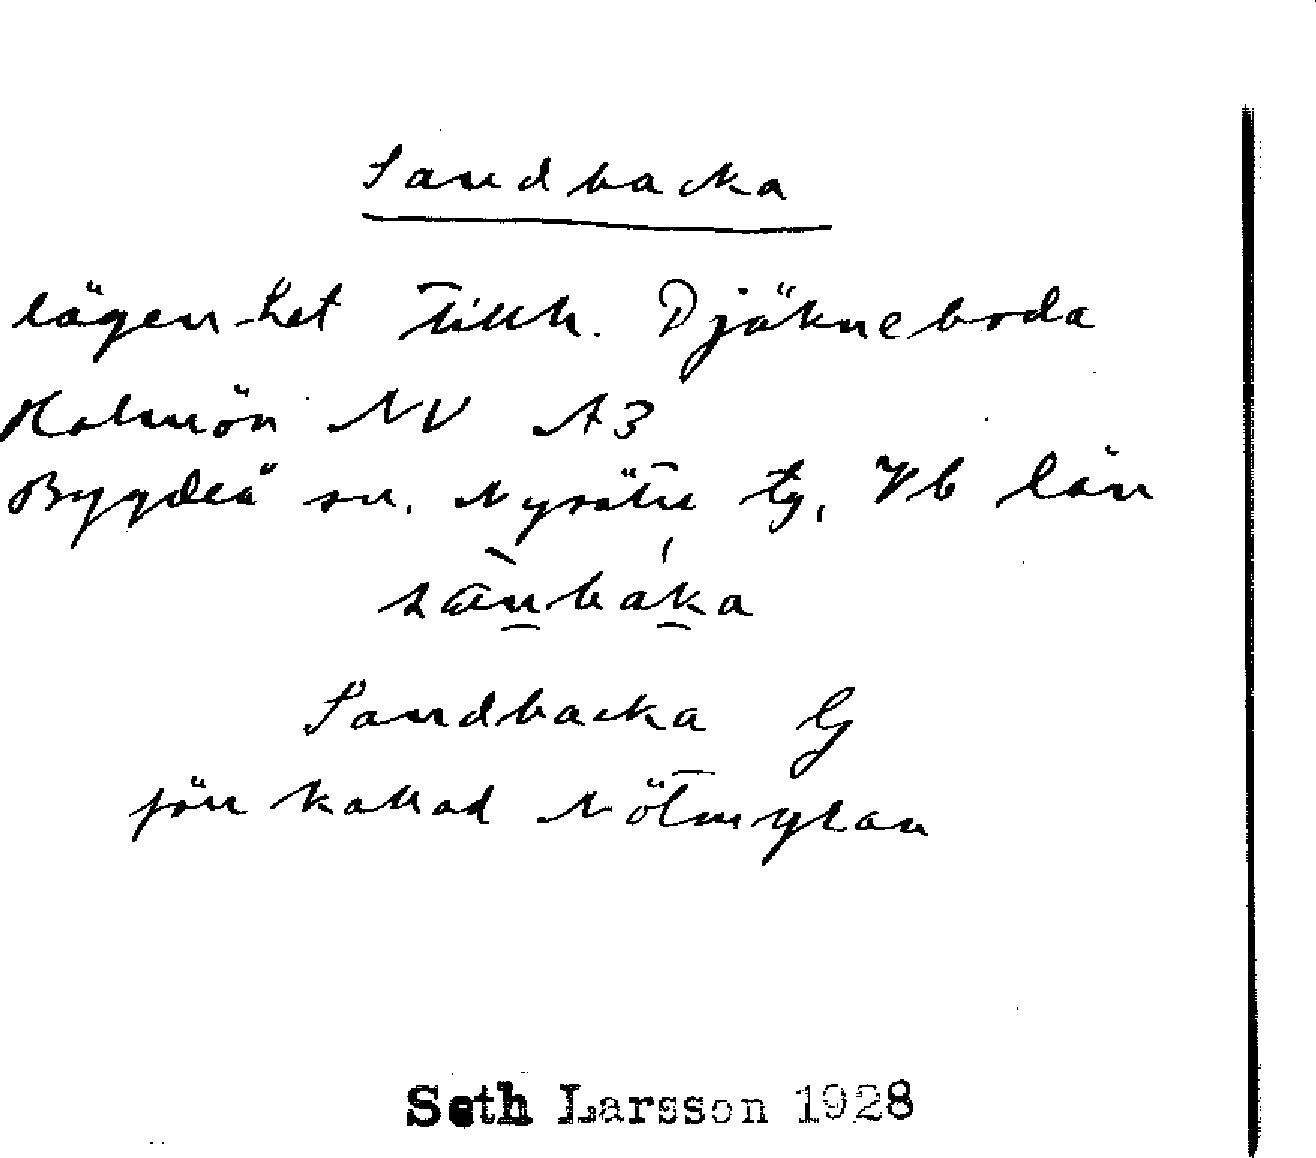 Sandbacka
lägenhet tillh. Djäkneboda
Holmön NV A3
Bygdeå sn. Nysätra tg, Vb län
Sandbacka G
förr kallad Nötmyran
Seth Larsson 1928